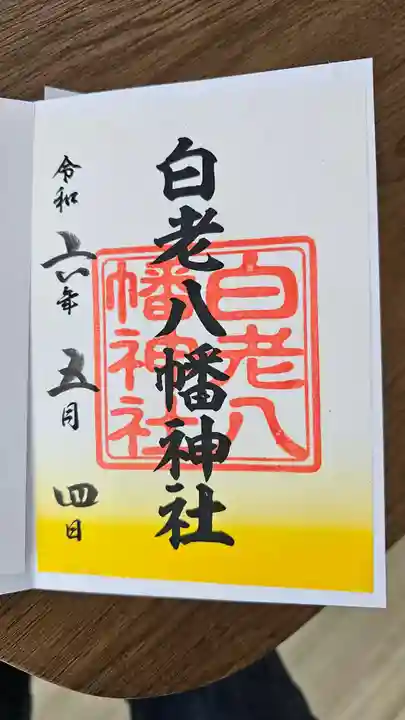 白老八幡神社
白老八
幡神社
令和六年五月四日